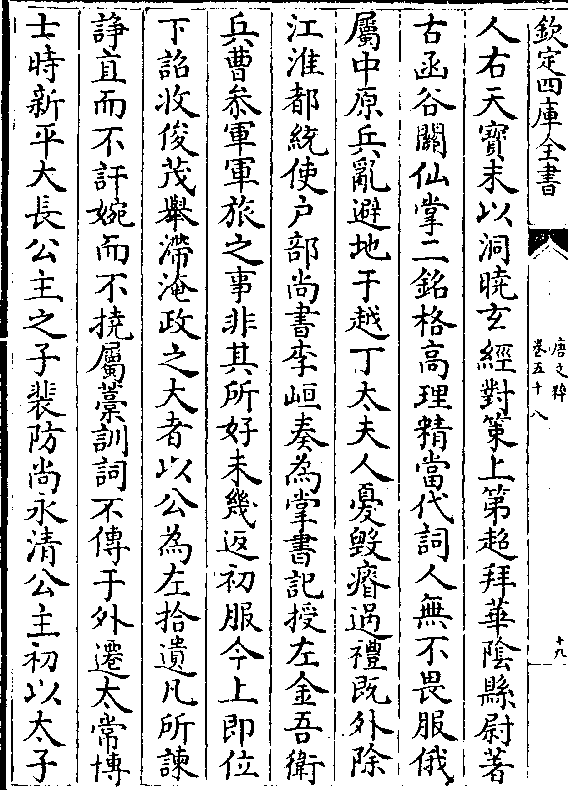 欽定四庫全書
唐文粹
卷五十八
十九
人右天寶末以洞曉玄經對策上第超拜華陰縣尉著
古函谷關仙掌二銘格高理精當代詞人無不畏服俄
屬中原兵亂避地于越丁太夫人憂毀瘠過禮既外除
江淮都統使户部尚書李峘奏為掌書記授左金吾衛
兵曹叅軍軍旅之事非其所好未幾返初服今上即位
下詔收俊茂舉滯淹政之大者以公為左拾遺凡所諫
諍直而不訐婉而不撓屬藁訓詞不傳于外遷太常博
士時新平大長公主之子裴防尚永清公主初以太子